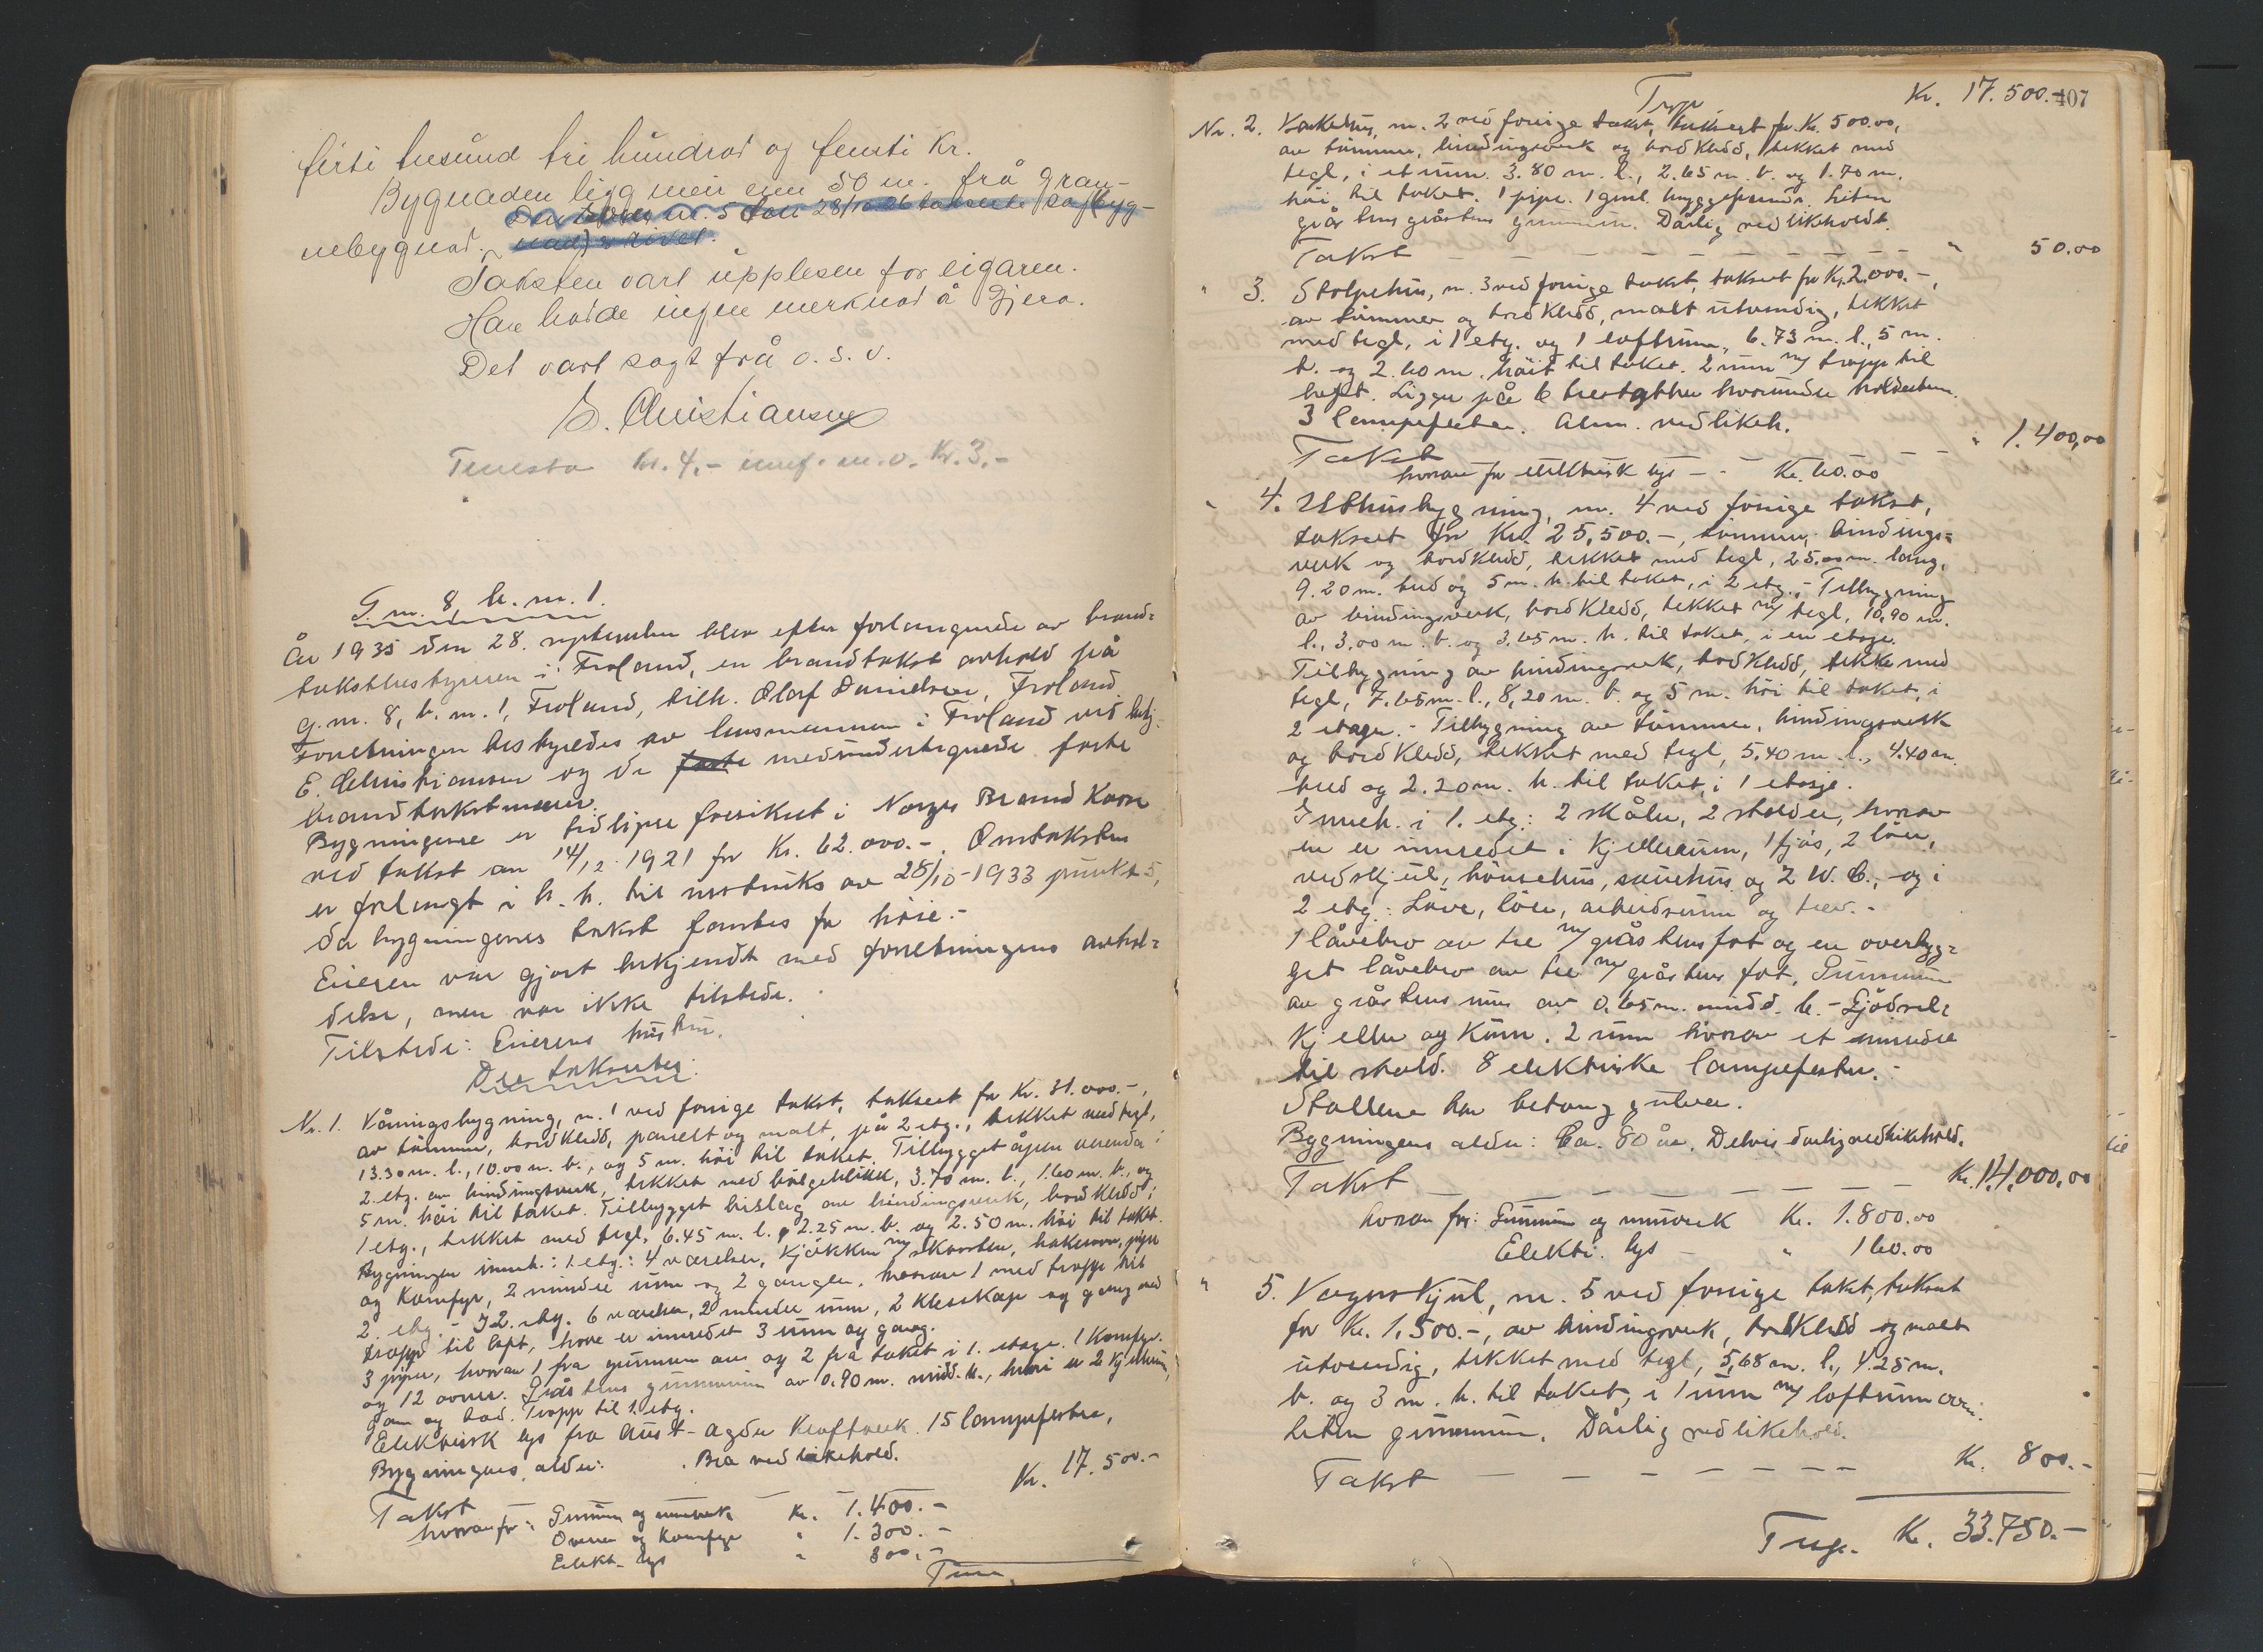 firti tusund tri hundrad og femti Kr.
Bygnaden ligg meir enn 50 m. frå gran-
nebygnad.
Taksten vart upplesen for eigaren.
Han hadde ingen merknad å gjera.
Det vart sagt frå o. s. v.
E. Christiansen
Tenesta Kr. 4,- m.v. Kr. 3,-
G. nr. 8, b. nr. 1.
År 1935 den 28. september blev efter forlangende av brand-
takstbestyreren i Froland, en brandtakst avholdt på
g. nr. 8, b. nr. 1, Froland, tilh. Olaf Danielsen, Froland
Forretningen bestyredes av lensmannen i Froland ved betj.
E. Christiansen og de medundertegnede faste
brandtakstmenn.
Bygningene er tidligere forsikret i Norges Brand Kasse
ved takst av 14/12 1921 for Kr. 62.000.-. Omtaksten
er forlangt i h. h. til instruks av 25/10-1933 punkt 5,
da bygningenes takst fantes for høie.-
Eieren var gjort bekjendt med forretningens avhol-
delse, men var ikke tilstede.
Tilstede: Eierens hustru.
Der takseres:
Nr. 1. Våningsbygning, nr. 1 ved forrige takst, taksert for Kr. 31.000.-,
av tømmer, bordkledd, panelt og malt, på 2 etg., tekket med tegl,
13.30 m. l., 10.00 m. b., og 5 m. høi til taket. Tilbygget åpen veranda i
2. etg. av bindingsverk, tekket med bølgeblikk, 3.70 m. l., 1.60 m. b., og
5 m. høi til taket. Tilbygget bislag av bindingsverk, bordkledd i
1 etg., tekket med tegl, 6.45 m. l., 2.25 m. b. og 2.50 m. høi til taket.
Bygningen inneh.: 1. etg.: 4 værelser, kjøkken m/ skorsten, bakerovn, pipe
og komfyr, 2 mindre rum og 2 ganger, hvorav 1 med trapp til
2. etg. - I 2. etg. 6 værelser, 2 mindre rum, 2 klesskap og gang med
trapp til loft, hvor er innredet 3 rum og gang.
3 piper, hvorav 1 fra grunnen av og 2 fra taket i 1. etage. 1 Komfyr
og 12 ovner. Gråstens grunnmur av 0.90 m. midd. h., hvori er 2 kjellerrum,
gan og bod. Trapp til 1. etg.
Elektrisk lys fra Aust-Agder Kraftverk. 15 lampefester,
Bygningens alder: . Bra vedlikehold.
Takst Kr. 17.500.-
hvorav for: Grunn og murverk Kr. 1.400.-
Ovner og Komfyr " 1.300.-
Elekt. lys " 300.-
407
Kr. 17.500.-
Nr. 2. nr. 2 ved forrige takst, taksert for Kr. 500.00,
av tømmer, bindingsverk og bordkledd, tekket med
tegl, i et rum. 3.80 m. l., 2.65 m. b. og 1.70 m.
høi til taket. 1 pipe. 1 gml. bryggepanne. Liten
gråstens grunnmur. Dårlig vedlikeholdt.
Takst " 50.00
" 3. Stolpehus, nr. 3 ved forrige takst, taksert for Kr. 2.000.-,
av tømmer og bordkledd, malt utvendig, tekket
med tegl, i 1 etg. og 1 loftrum, 6.73 m. l., 5 m.
b. og 2.60 m. høit til taket. 2 rum m/ trapp til
loft. Ligger på 6 trestabber hvorunder
3 lampefester. Alm. vedlikeh.
Takst " 1.400,00
hvorav for elektrisk lys - - Kr. 60.00
" 4. Uthusbygning, nr. 4 ved forrige takst,
taksert for Kr. 25,500.-, tømmer, bindings-
verk og bordkledd, tekket med tegl, 25.00 m. lang,
9.20 m. bred og 5 m. h. til taket, i 2 etg.; Tilbygning
av bindingsverk, bordkledd, tekket m/ tegl, 10,90 m.
l., 3,00 m. b. og 3.65 m. h. til taket, i en etage.
Tilbygning av bindingsverk, bordkledd, tekke med
tegl, 7.65 m. l., 8,20 m. b. og 5 m. høi til taket, i
2 etager. - Tilbygning av tømmer, bindingsverk
og bordkledd, tekket med tegl, 5,40 m. l., 4.40 m.
bred og 2.20 m. h. til taket, i 1 etasje.
Inneh. i 1. etg: 2 skåler, 2 stalder, hvorav
en er innredet i kjellerrum, 1 fjøs, 2 løer,
vedskjul, hønsehus, sauehus og 2 W. C., og i
2 etg: Låve, løer, arbeidsrum og trev.-
1 låvebro av tre m/ gråstens fot og en overbyg-
get låvebro av tre m/ gråstens fot. Grunnmur
av gråstens mur av 0.65 m. midd. h. - Gjødsel-
kjeller og 2 rum hvorav et innredet
til stald. 8 elektriske lampefester.-
Stallene har betong gulver.
Bygningens alder: Ca. 80 år. Delvis dårlig vedlikehold.
Takst Kr. 14.000,00
hvorav for: Grunn og murverk Kr. 1.800.00
Elektr. lys - " 160.00
" 5. Vognskjul, nr. 5 ved forrige takst, taksert
for Kr. 1.500.-, av bindingsverk, bordkledd og malt
utvendig, tekket med tegl, 5,68 m. l., 4.25 m.
b. og 3 m. h. til taket, i 1 rum m/ loftrum over.
Liten grunnmur. Dårlig vedlikehold.
Takst Kr. 800.-
Kr. 33.750.-